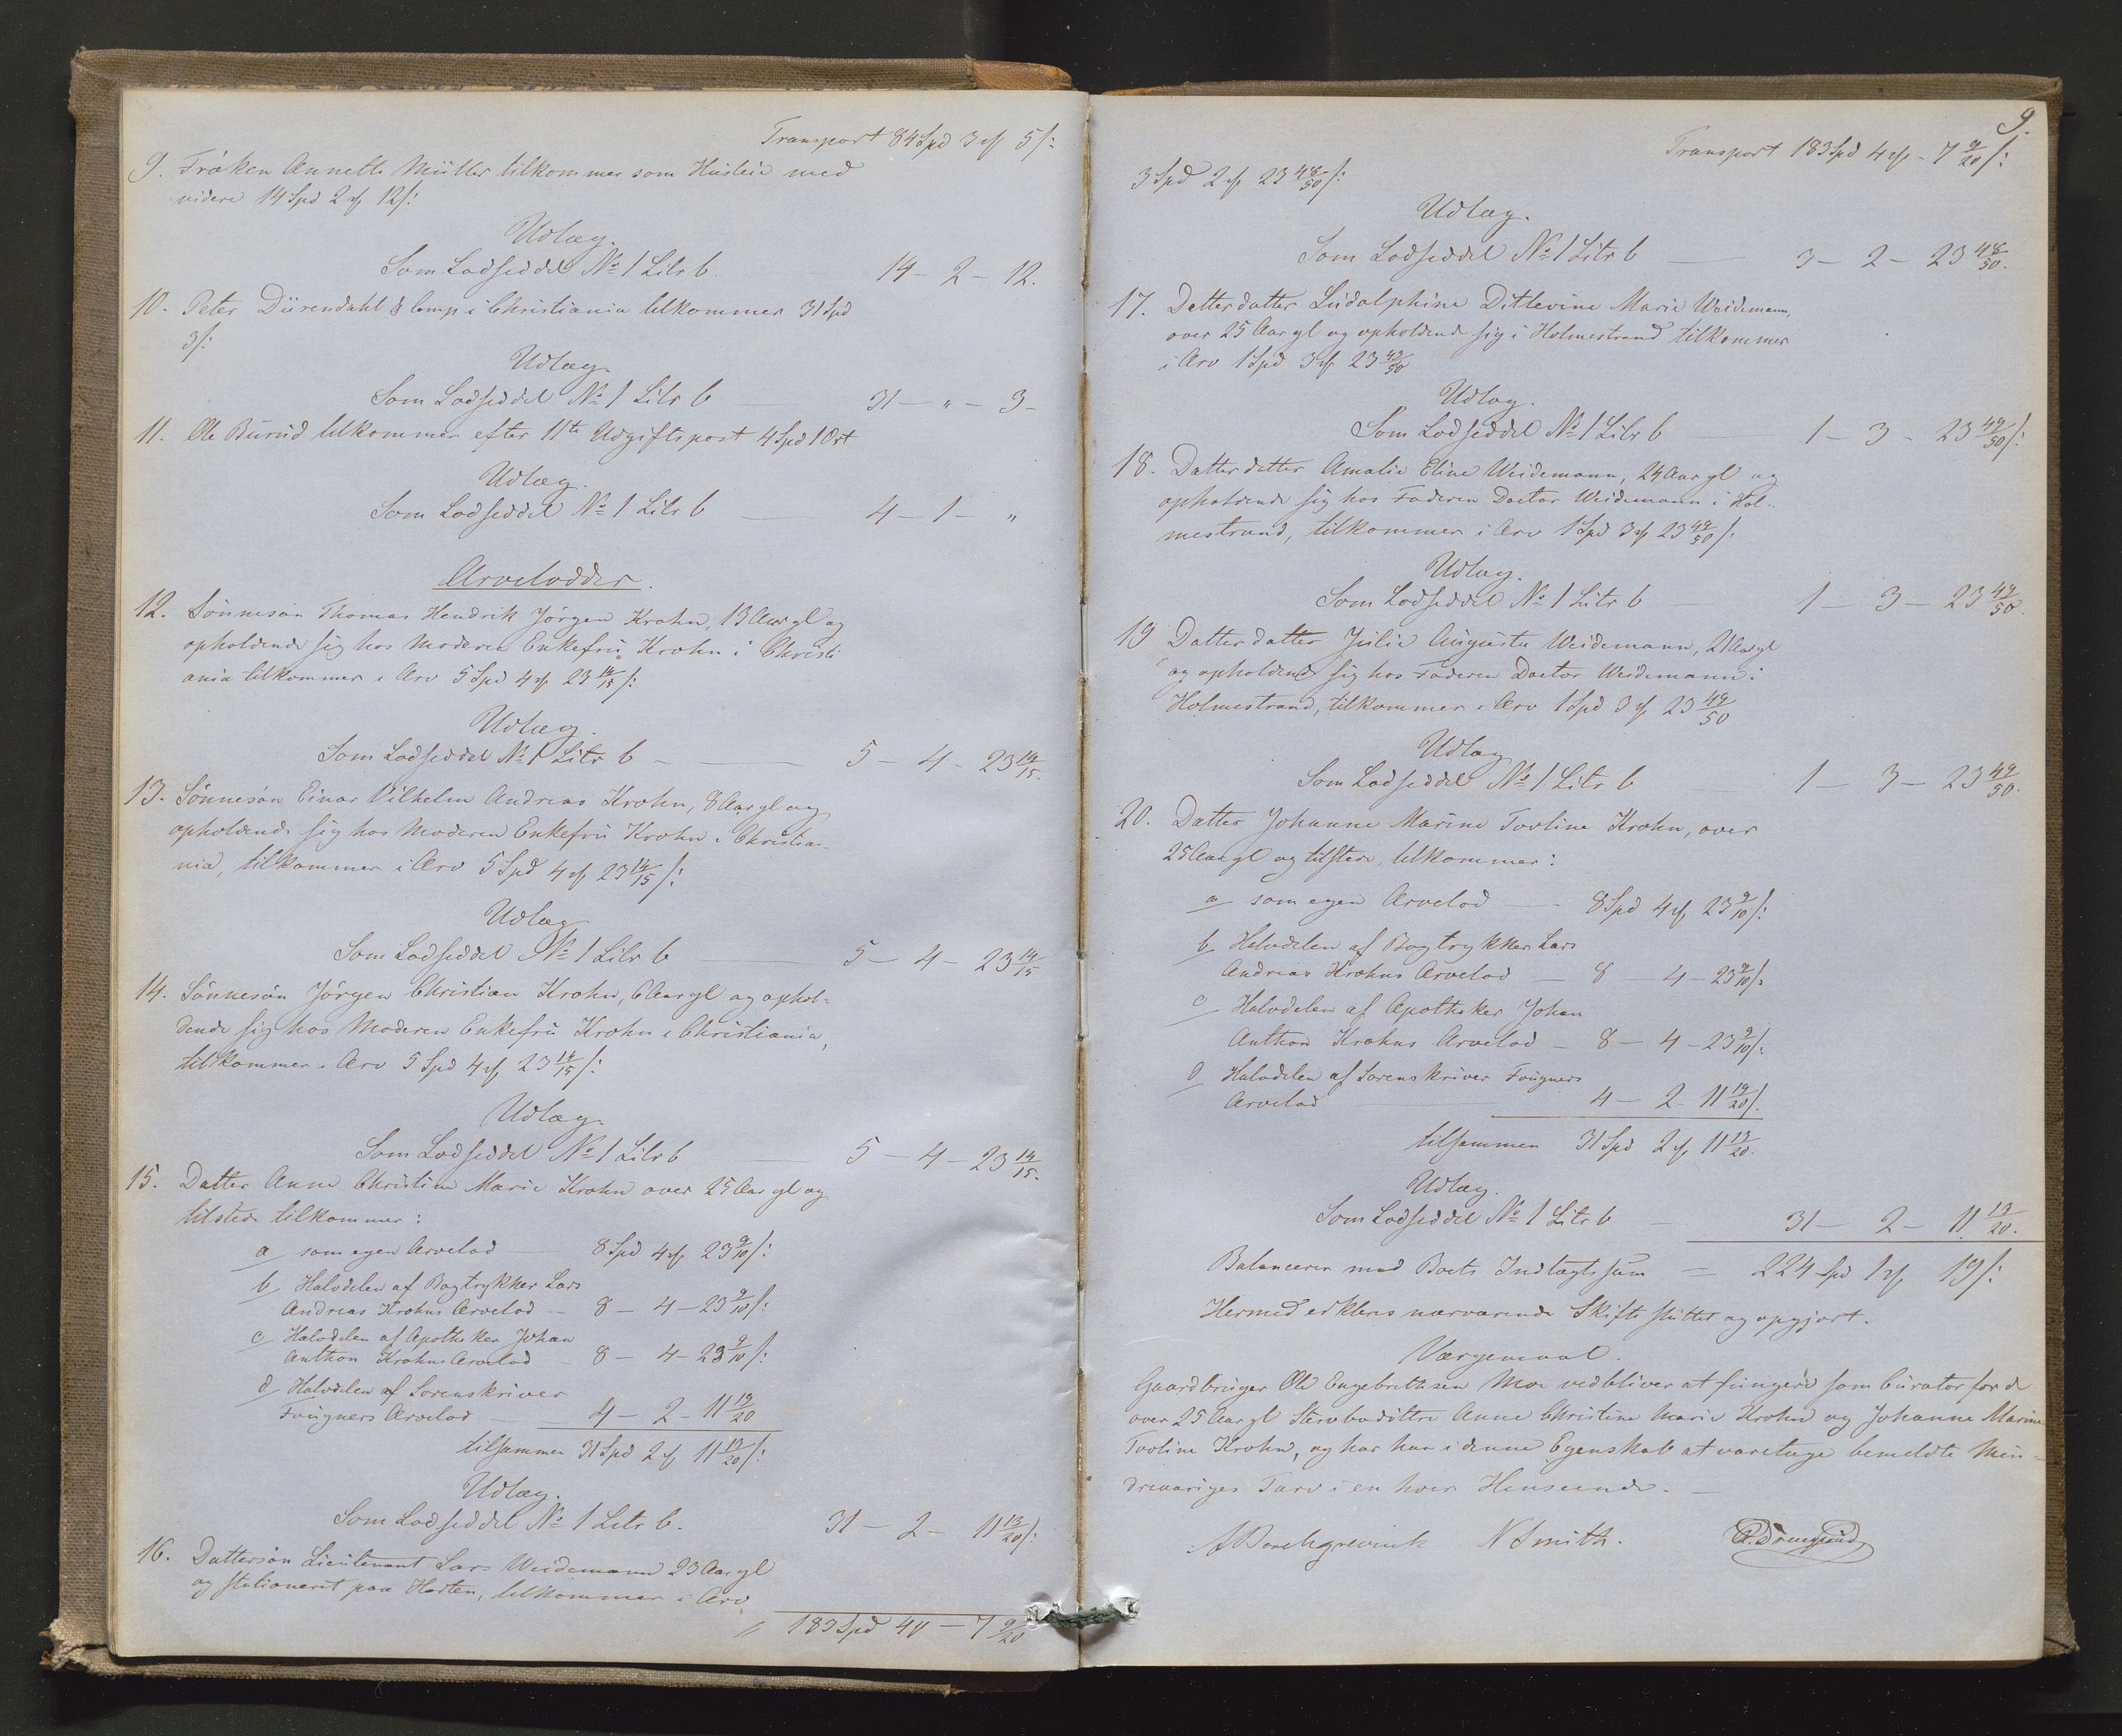 Transport 84 Spd 3 ₰ 5 s:
9. Fröken Annette Müller tilkommer som Husleie med
videre 14 Spd 2 ₰ 12 s:
Udlæg.
Som Lodseddel No 1 Litr b. 14 – 2 – 12.
10. Peter Dürendahl & Comp i Christiania tilkommer 31 Spd
3 s:
Udlæg.
Som Lodseddel No 1 Litr b — 31 – „ – 3 –
11. Ole Burud tilkommer efter 11te Udgiftspost 4 Spd 1 Ort
Udlæg.
Som Lodseddel No 1 Litr b — 4 – 1 – „
Arvelodder.
12. Sönnesön Thomas Hendrik Jörgen Krohn, 13 Aar gl og
opholdende sig hos Moderen Enkefru Krohn i Christi
ania tilkommer i Arv 5 Spd 4 ₰ 23 14/15 s:
Udlæg.
Som Lodseddel No 1 Litr b — 5 – 4 – 23 14/15.
13. Sönnesön Einar Vilhelm Andreas Krohn, 8 Aar gl og
opholdende sig hos Moderen Enkefru Krohn i Christia-
nia, tilkommer i Arv 5 Spd 4 ₰ 23 14/15 s:
Udlæg
Som Lodseddel No 1 Litr b — 5 – 4 – 23 14/15
14. Sönnesön Jörgen Christian Krohn, 6 Aar gl og ophol-
dende sig hos Moderen Enkefru Krohn i Christiania,
tilkommer i Arv 5 Spd 4 ₰ 23 14/15 s:
Udlæg.
Som Lodseddel No 1 Litr b — 5 – 4 – 23 14/15.
15. Datter Anne Christine Marie Krohn over 25 Aar gl og
tilstede tilkommer:
a/ som egen Arvelod — 8 Spd 4 ₰ 23 9/10 s:
b/ Halvdelen af Bogtrykker Lars
Andreas Krohns Arvelod – 8 – 4 – 23 9/10 s:
c/ Halvdelen af Apotheker Johan
Anthon Krohns Arvelod – 8 – 4 – 23 9/10 s:
d/ Halvdelen af Sorenskriver
Fougners Arvelod — 4 – 2 – 11 19/20
tilsammen 31 Spd 2 ₰ 11 13/20 s:
Udlæg.
Som Lodseddel No 1 Litr b. 31 – 2 – 11 13/20 s:
16. Dattersön Lieutenant Lars Weidemann 23 Aar gl
og stationeret paa Horten, tilkommer i Arv
183 Spd 4 ₰ – 7 9/20
9.
Transport 183 Spd 4 ₰ – 7 9/20 s:
3 Spd 2 ₰ 23 48/50 s:
Udlæg.
Som Lodseddel No 1 Litr b — 3 – 2 – 23 48/50.
17. Datterdatter Ludolphine Ditlevine Marie Weidemann,
over 25 Aar gl og opholdende sig i Holmestrand tilkommer
i Arv 1 Spd 3 ₰ 23 49/50
Udlæg.
Som Lodseddel No 1 Litr b — 1 – 3 – 23 49/50 s:
18. Datterdatter Amalie Eline Weidemann, 24 Aar gl og
opholdende sig hos Faderen Doctor Weidemann i Hol-
mestrand, tilkommer i Arv 1 Spd 3 ₰ 23 49/50 s:
Udlæg.
Som Lodseddel No 1 Litr b — 1 – 3 – 23 49/50.
19 Datterdatter Julie Augusta Weidemann, 21 Aar gl
og opholdende sig hos Faderen Doctor Weidemann i
Holmestrand, tilkommer i Arv 1 Spd 3 ₰ 23 49/50
Udlæg
Som Lodseddel No 1 Litr b — 1 – 3 – 23 49/50.
20. Datter Johanne Marine Tovline Krohn, over
25 Aar gl og tilstede tilkommer:
a/ som egen Arvelod — 8 Spd 4 ₰ 23 9/10 s:
b/ Halvdelen af Bogtrykker Lars
Andreas Krohns Arvelod — 8 – 4 – 23 9/10 s:
c/ Halvdelen af Apotheker Johan
Anthon Krohns Arvelod – 8 – 4 – 23 9/10 s:
d/ Halvdelen af Sorenskriver Fougners
Arvelod — 4 – 2 – 11 19/20 s.
tilsammen 31 Spd 2 ₰ 11 13/20.
Udlæg.
Som Lodseddel No 1 Litr b — 31 – 2 – 11 13/20.
Balancerer med Boets Indtægtssum = 224 Spd 1 ₰ 19 s:
Hermed erklæres nærværende Skifte sluttet og opgjort.
Værgemaal.
Gaardbruger Ole Engebrethsen Moe vedbliver at fungere som Curator for de
over 25 Aar gl Stervbodöttre Anne Christine Marie Krohn og Johanne Marine
Tovline Krohn, og har han i denne Egenskab at varetage bemeldte Min-
dreaariges Tarv i en hver Henseende. —
A Borchgrevink N Smith.